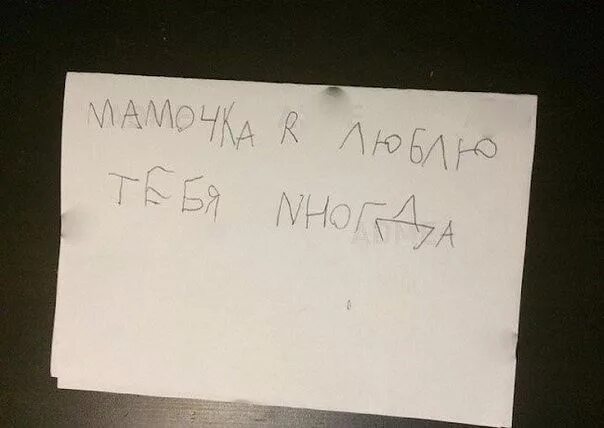 МАМОЧКА R ЛЮБЛЮ
ТЕБЯ NНОГДА